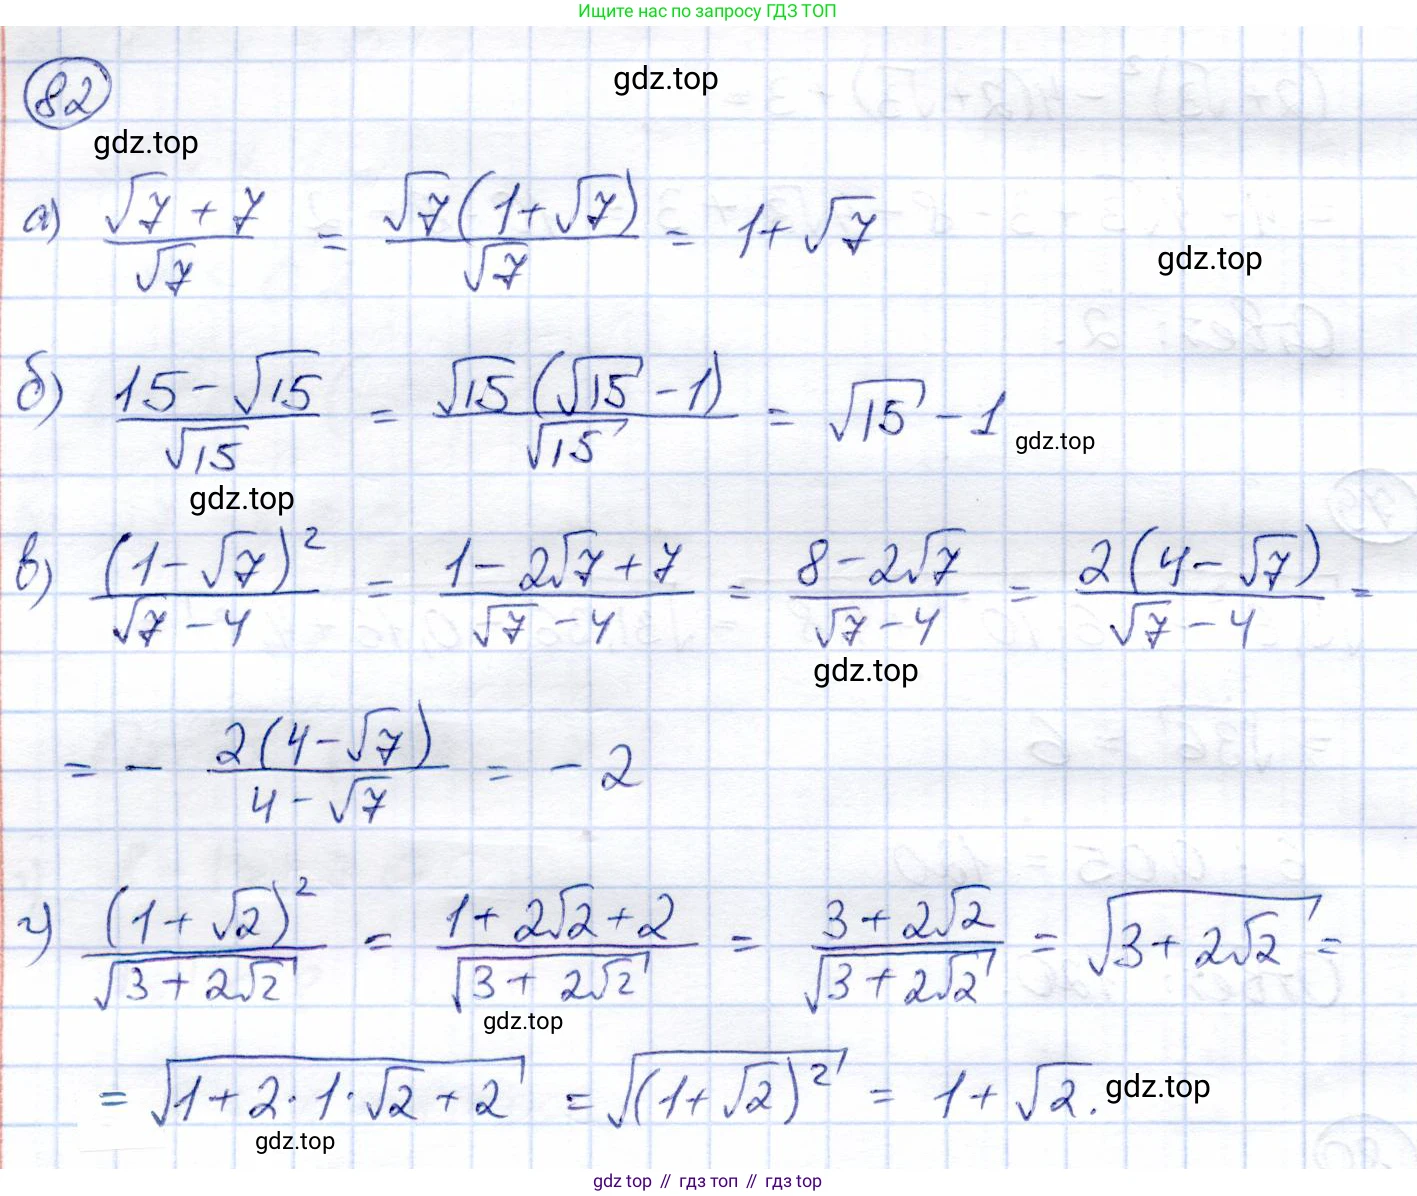 Ищите нас по запросу ГДЗ ТОП
82
gdz.top
gdz.top
а) (√7 + 7)/√7 = √7(1 + √7)/√7 = 1 + √7
gdz.top
б) (15 - √15)/√15 = √15(√15 - 1)/√15 = √15 - 1
gdz.top
gdz.top
в) (1 - √7)²/(√7 - 4) = (1 - 2√7 + 7)/(√7 - 4) = (8 - 2√7)/(√7 - 4) = 2(4 - √7)/(√7 - 4) =
gdz.top
= - 2(4 - √7)/(4 - √7) = - 2
г) (1 + √2)²/√(3 + 2√2) = (1 + 2√2 + 2)/√(3 + 2√2) = (3 + 2√2)/√(3 + 2√2) = √(3 + 2√2) =
gdz.top
= √(1 + 2·1·√2 + 2) = √((1 + √2)²) = 1 + √2.
gdz.top
gdz.top
gdz top // гдз топ // гдз top